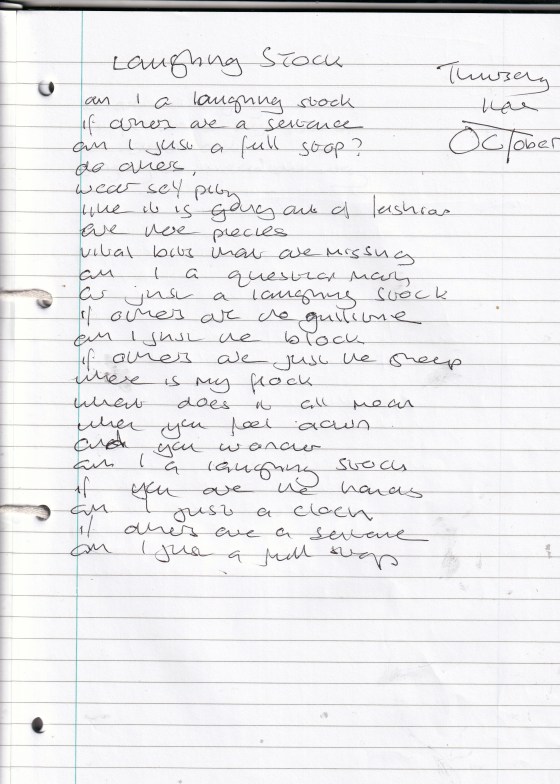 Laughing Stock
Thursday
October
am I a laughing stock
if others are a sentence
am I just a full stop?
do others,
wear self pity
like it is going out of fashion
are there pieces
vital bits that are missing
am I a question mark
or just a laughing stock
if others are the guillotine
am I just the block
if others are just the sheep
where is my flock
what does it all mean
when you feel down
and you wonder
am I a laughing stock
if you are the hands
am I just a clock
if others are a sentence
am I just a full stop